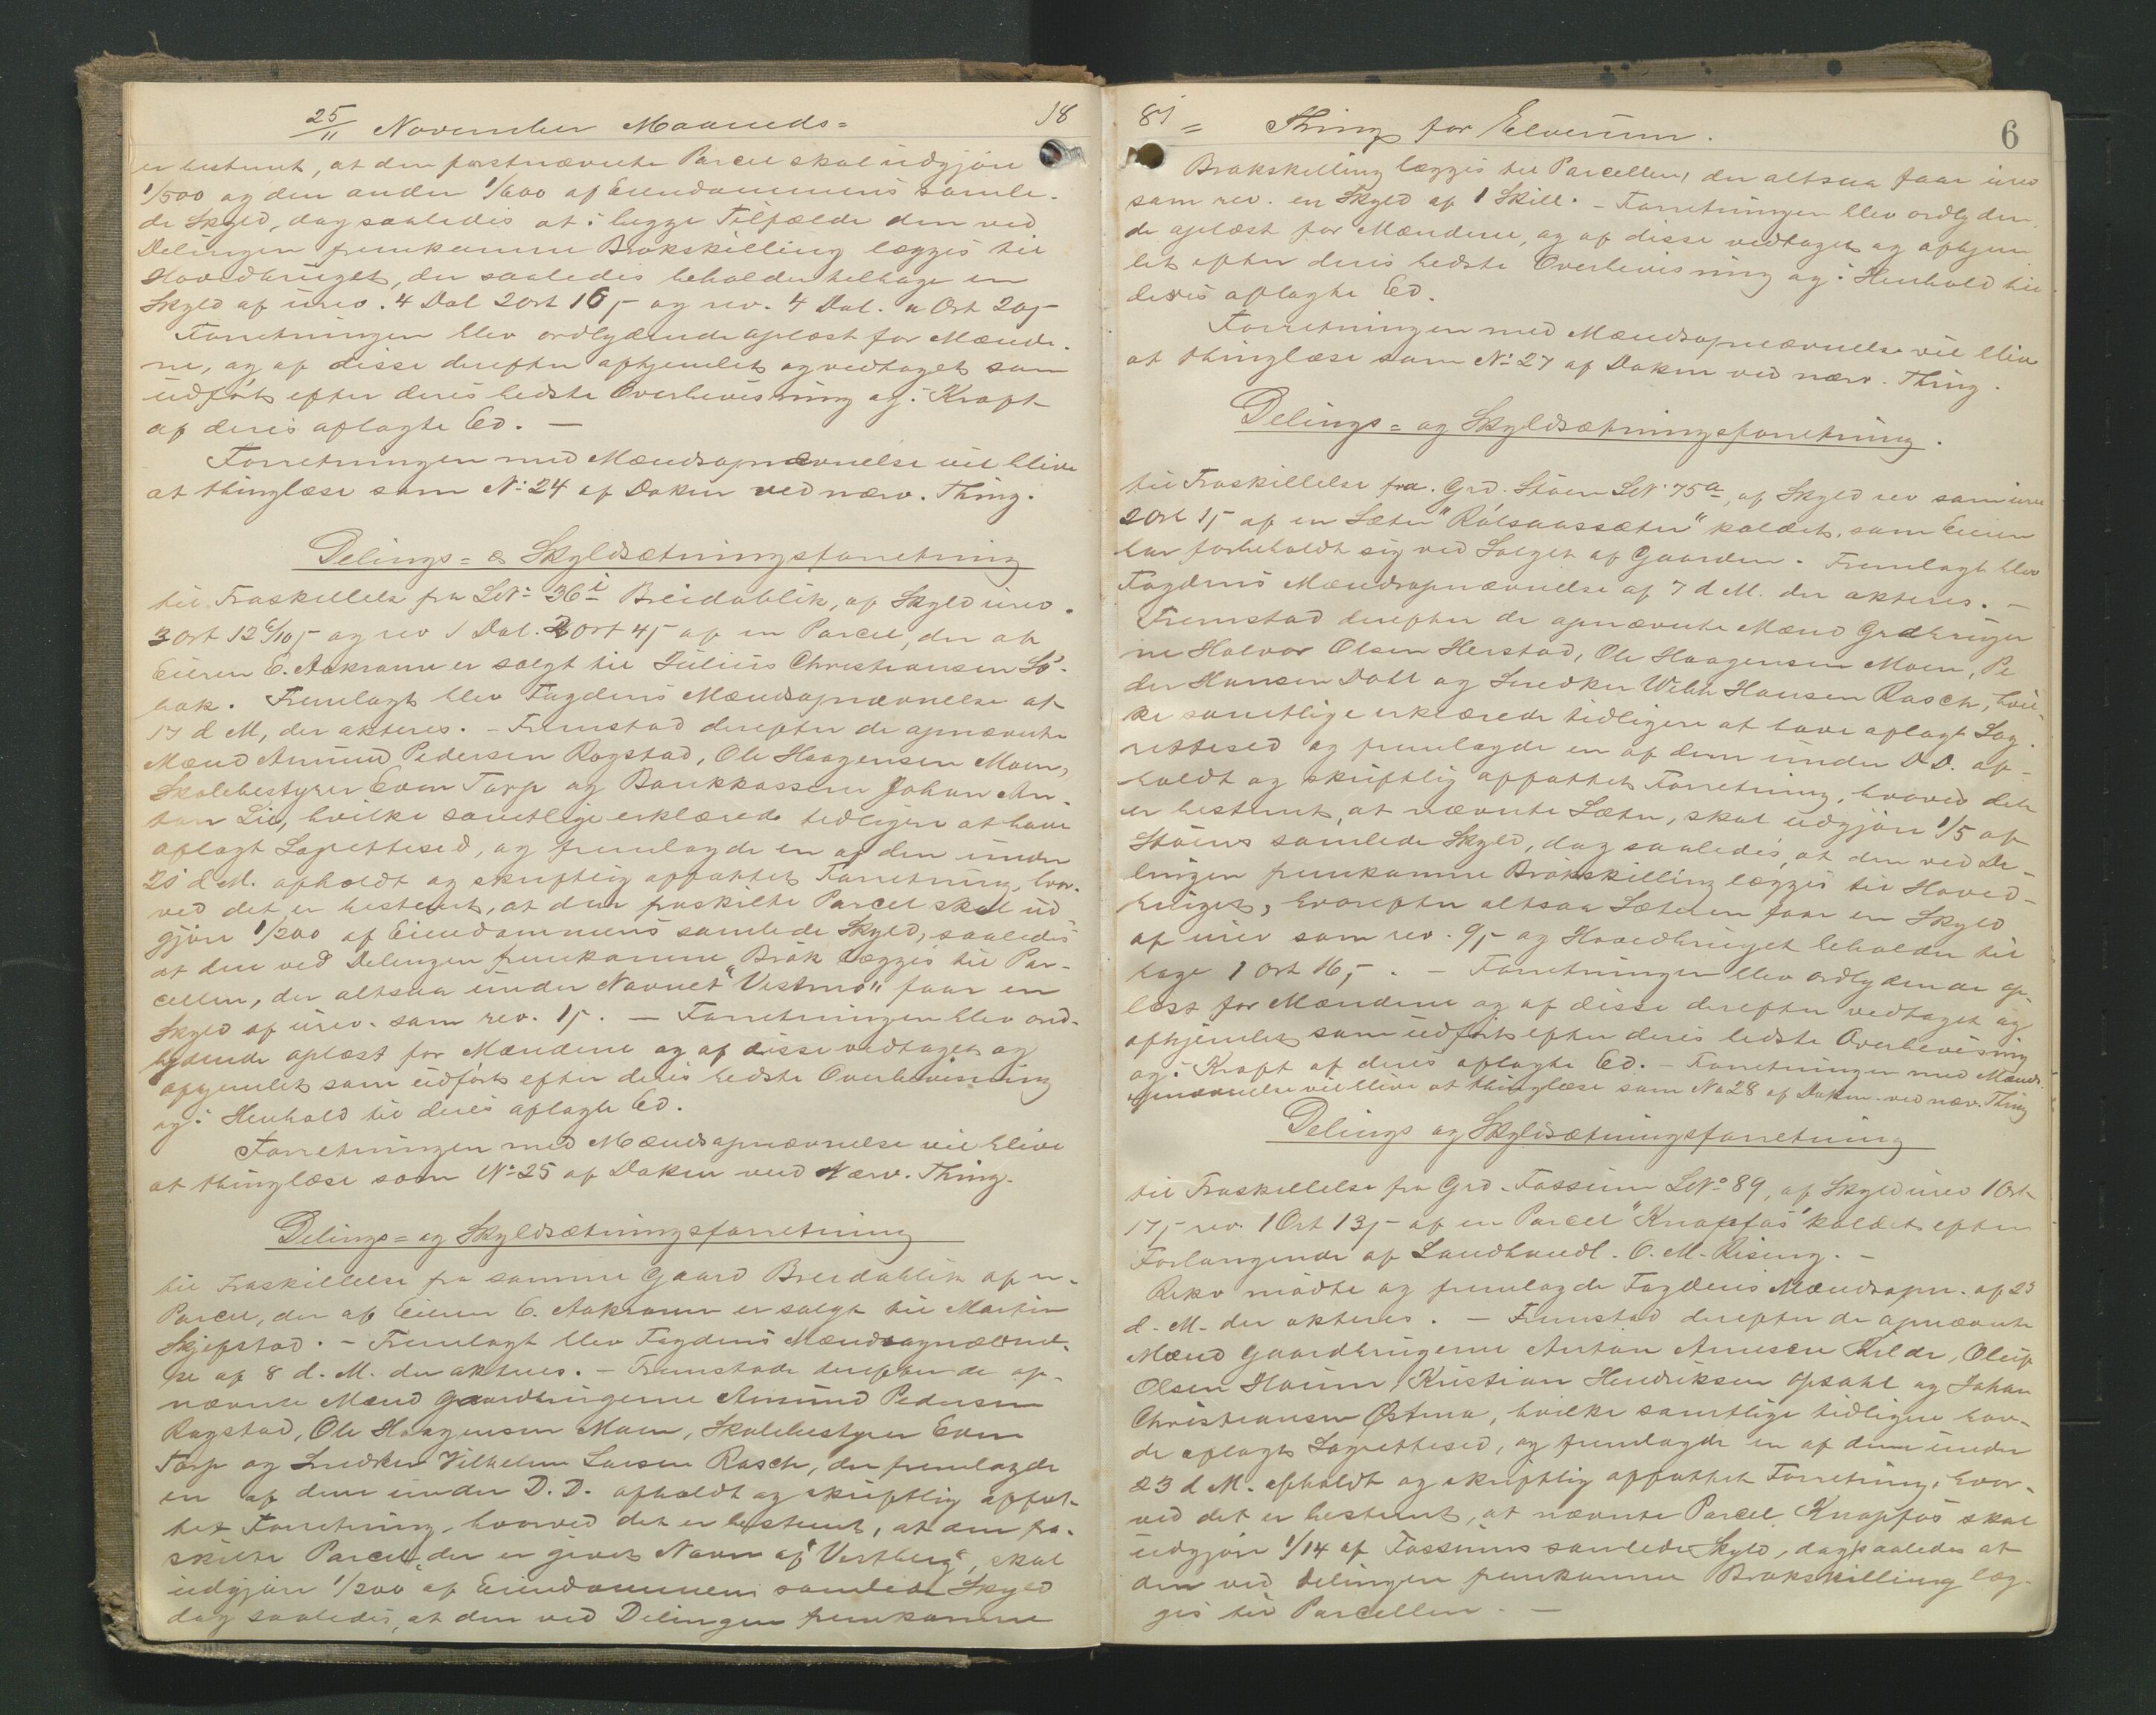 25/11 November Maaneds= 18
er bestemt, at den førstnævnte Parcel skal udgjøre
1/500 og den anden 1/600 af Eiendommens samle-
de Skyld, dog saaledes at i begge Tilfælde den ved
Delingen fremkomne Brøkskilling lægges til
Hovedbruget, der saaledes beholder tilbage en
Skyld af urev. 4 Dal 2 Ort 16,- og rev. 4 Dal. " Ort 20,-
Forretningen blev ordlydende oplæst for Mænde-
ne, og af disse derefter afhjemlet og vedtaget som
udført efter deres bedste Overbevisning og i Kraft
af deres aflagte Ed. —
Forretningen med Mændsopnævnelse vil blive
at thinglæse som No 24 af Dokm ved nærv. Thing.
Delings= & Skyldsætningsforretning
til Fraskillelse fra LNo 36 i Breidablik, af Skyld urev.
3 Ort 12 6/10,- og rev 1 Dal. 2 Ort 4,- af en Parcel, der af
Eieren C. Aakrann er solgt til Julius Christiansen Lø-
bak. Fremlagt blev Fogdens Mændsopnævnelse af
17 d M, der akteres. - Fremstod derefter de opnævnte
Mænd Amund Pedersen Rogstad, Ole Haagensen Moen,
Skolebestyrer Even Torp og Bankkasserer Johan An-
ton Lie, hvilke samtlige erklærede tidligere at have
aflagt Lagrettesed, og fremlagde en af dem under
25 d M. afholdt og skriftlig affattet Forretning, hvor-
ved det er bestemt, at den fraskilte Parcel skal ud
gjøre 1/200 af Eiendommens samlede Skyld, saaledes
at den ved Delingen fremkomne Brøk lægges til Par-
cellen, der altsaa under Navnet "Vestmo" faar en
Skyld af urev. som rev. 1,-. — Forretningen blev ord-
lydende oplæst for Mændene og af disse vedtaget og
afhjemlet som udført efter deres bedste Overbevisning
og i Henhold til deres aflagte Ed.
Forretningen med Mændsopnævnelse vil blive
at thinglæse som No 25 af Dokm ved Nærv. Thing.
Delings= og Skyldsætningsforretning
til Fraskillelse fra samme Gaard Breidablik af en
Parcel, der af Eieren C. Aakrann er solgt til Martin
Skjefstad. - Fremlagt blev Fogdens Mændsopnævnel-
se af 8 d. M. der akteres. - Fremstode derefter de op-
nævnte Mænd Gaardbrugerne Amund Pedersen
Rogstad, Ole Haagensen Moen, Skolebestyrer Even
Torp og Snedker Vilhelm Larsen Rasch, der fremlagde
en af dem under D. D. afholdt og skriftlig affat-
tet Forretning, hvorved det er bestemt, at den fra-
skilte Parcel, der er givet Navn af "Vestberg", skal
udgjøre 1/200 af Eiendommens samlede Skyld
dog saaledes, at den ved Delingen fremkomne
87 = Thing for Elverum. 6
Brøkskilling lægges til Parcellen, der altsaa faar urev
som rev. en Skyld af 1 Skill. - Forretningen blev ordlyden
de oplæst for Mændene, og af disse vedtaget og afhjem
let efter deres bedste Overbevisning og i Henhold til
deres aflagte Ed.
Forretningen med Mændsopnævnelse vil blive
at thinglæse som No 27 af Dokm ved nærv. Thing.
Delings= og Skyldsætningsforretning.
til Fraskillelse fra Grd. Støen LNo 75 a, af Skyld rev som urev
2 Ort 1,- af en Sæter "Rølsaassæter" kaldet, som Eieren
har forbeholdt sig ved Salget af Gaarden. Fremlagt blev
Fogdens Mændsopnævnelse af 7 d M. der akteres. -
Fremstod derefter de opnævnte Mænd Grdbruger
ne Halvor Olsen Herstad, Ole Haagensen Moen, Pe
der Hansen Dahl og Snedker Wilh Hansen Rasch, hvil-
ke samtlige erklærede tidligere at have aflagt Lag-
rettesed og fremlagde en af dem under D. D. af-
holdt og skriftlig affattet Forretning, hvorved det
er bestemt, at nævnte Sæter, skal udgjøre 1/5 af
Støens samlede Skyld, dog saaledes, at den ved De-
lingen fremkomne Brøkskilling lægges til Hoved-
bruget, hvorefter altsaa Sæteren faar en Skyld
af urev som rev. 9,- og Hovedbruget beholder til
bage 1 Ort 16,-. - Forretningen blev ordlydende op-
læst for Mændene og af disse derefter vedtaget og
afhjemlet som udført efter deres bedste Overbevisning
og i Kraft af deres aflagte Ed. - Forretningen med Mænds-
opnævnelse vil blive at thinglæse som No 28 af Dokm. ved nærv. Thing
Delings og Skyldsætningsforretning
til Fraskillelse fra Grd. Fossum LNo 89, af Skyld urev 1 Ort
17,- rev. 1 Ort 13,- af en Parcel "Knapfos" kaldet efter
Forlangende af Landhandl. O. M. Rising. -
Rekv mødte og fremlagde Fogdens Mændsopn. af 23
d. M. der akteres. - Fremstod derefter de opnævnte
Mænd Gaardbrugerne Anton Arnesen Kilde, Oluf
Olsen Hoium, Kristian Hendriksen Opsahl og Johan
Christiansen Østmo, hvilke samtlige tidligere hav-
de aflagt Lagrettesed, og fremlagde en af dem under
23 d M. afholdt og skriftlig affattet Forretning, hvor-
ved det er bestemt, at nævnte Parcel Knapfos skal
udgjøre 1/14 af Fossums samlede Skyld, dog saaledes at
den ved Delingen fremkomne Brøkskilling læg-
ges til Parcellen. —